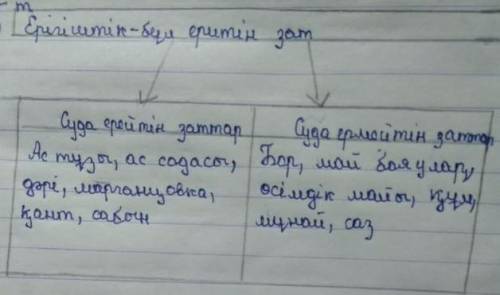 Ерігіштік-бұл еритін зат
Суда еритін заттар
Ас тұзы, ас содасы,
дәрі, марганцовка,
қант, сабын
Суда ермейтін заттар
Бор, май бояулары,
өсімдік майы, құм,
мұнай, саз